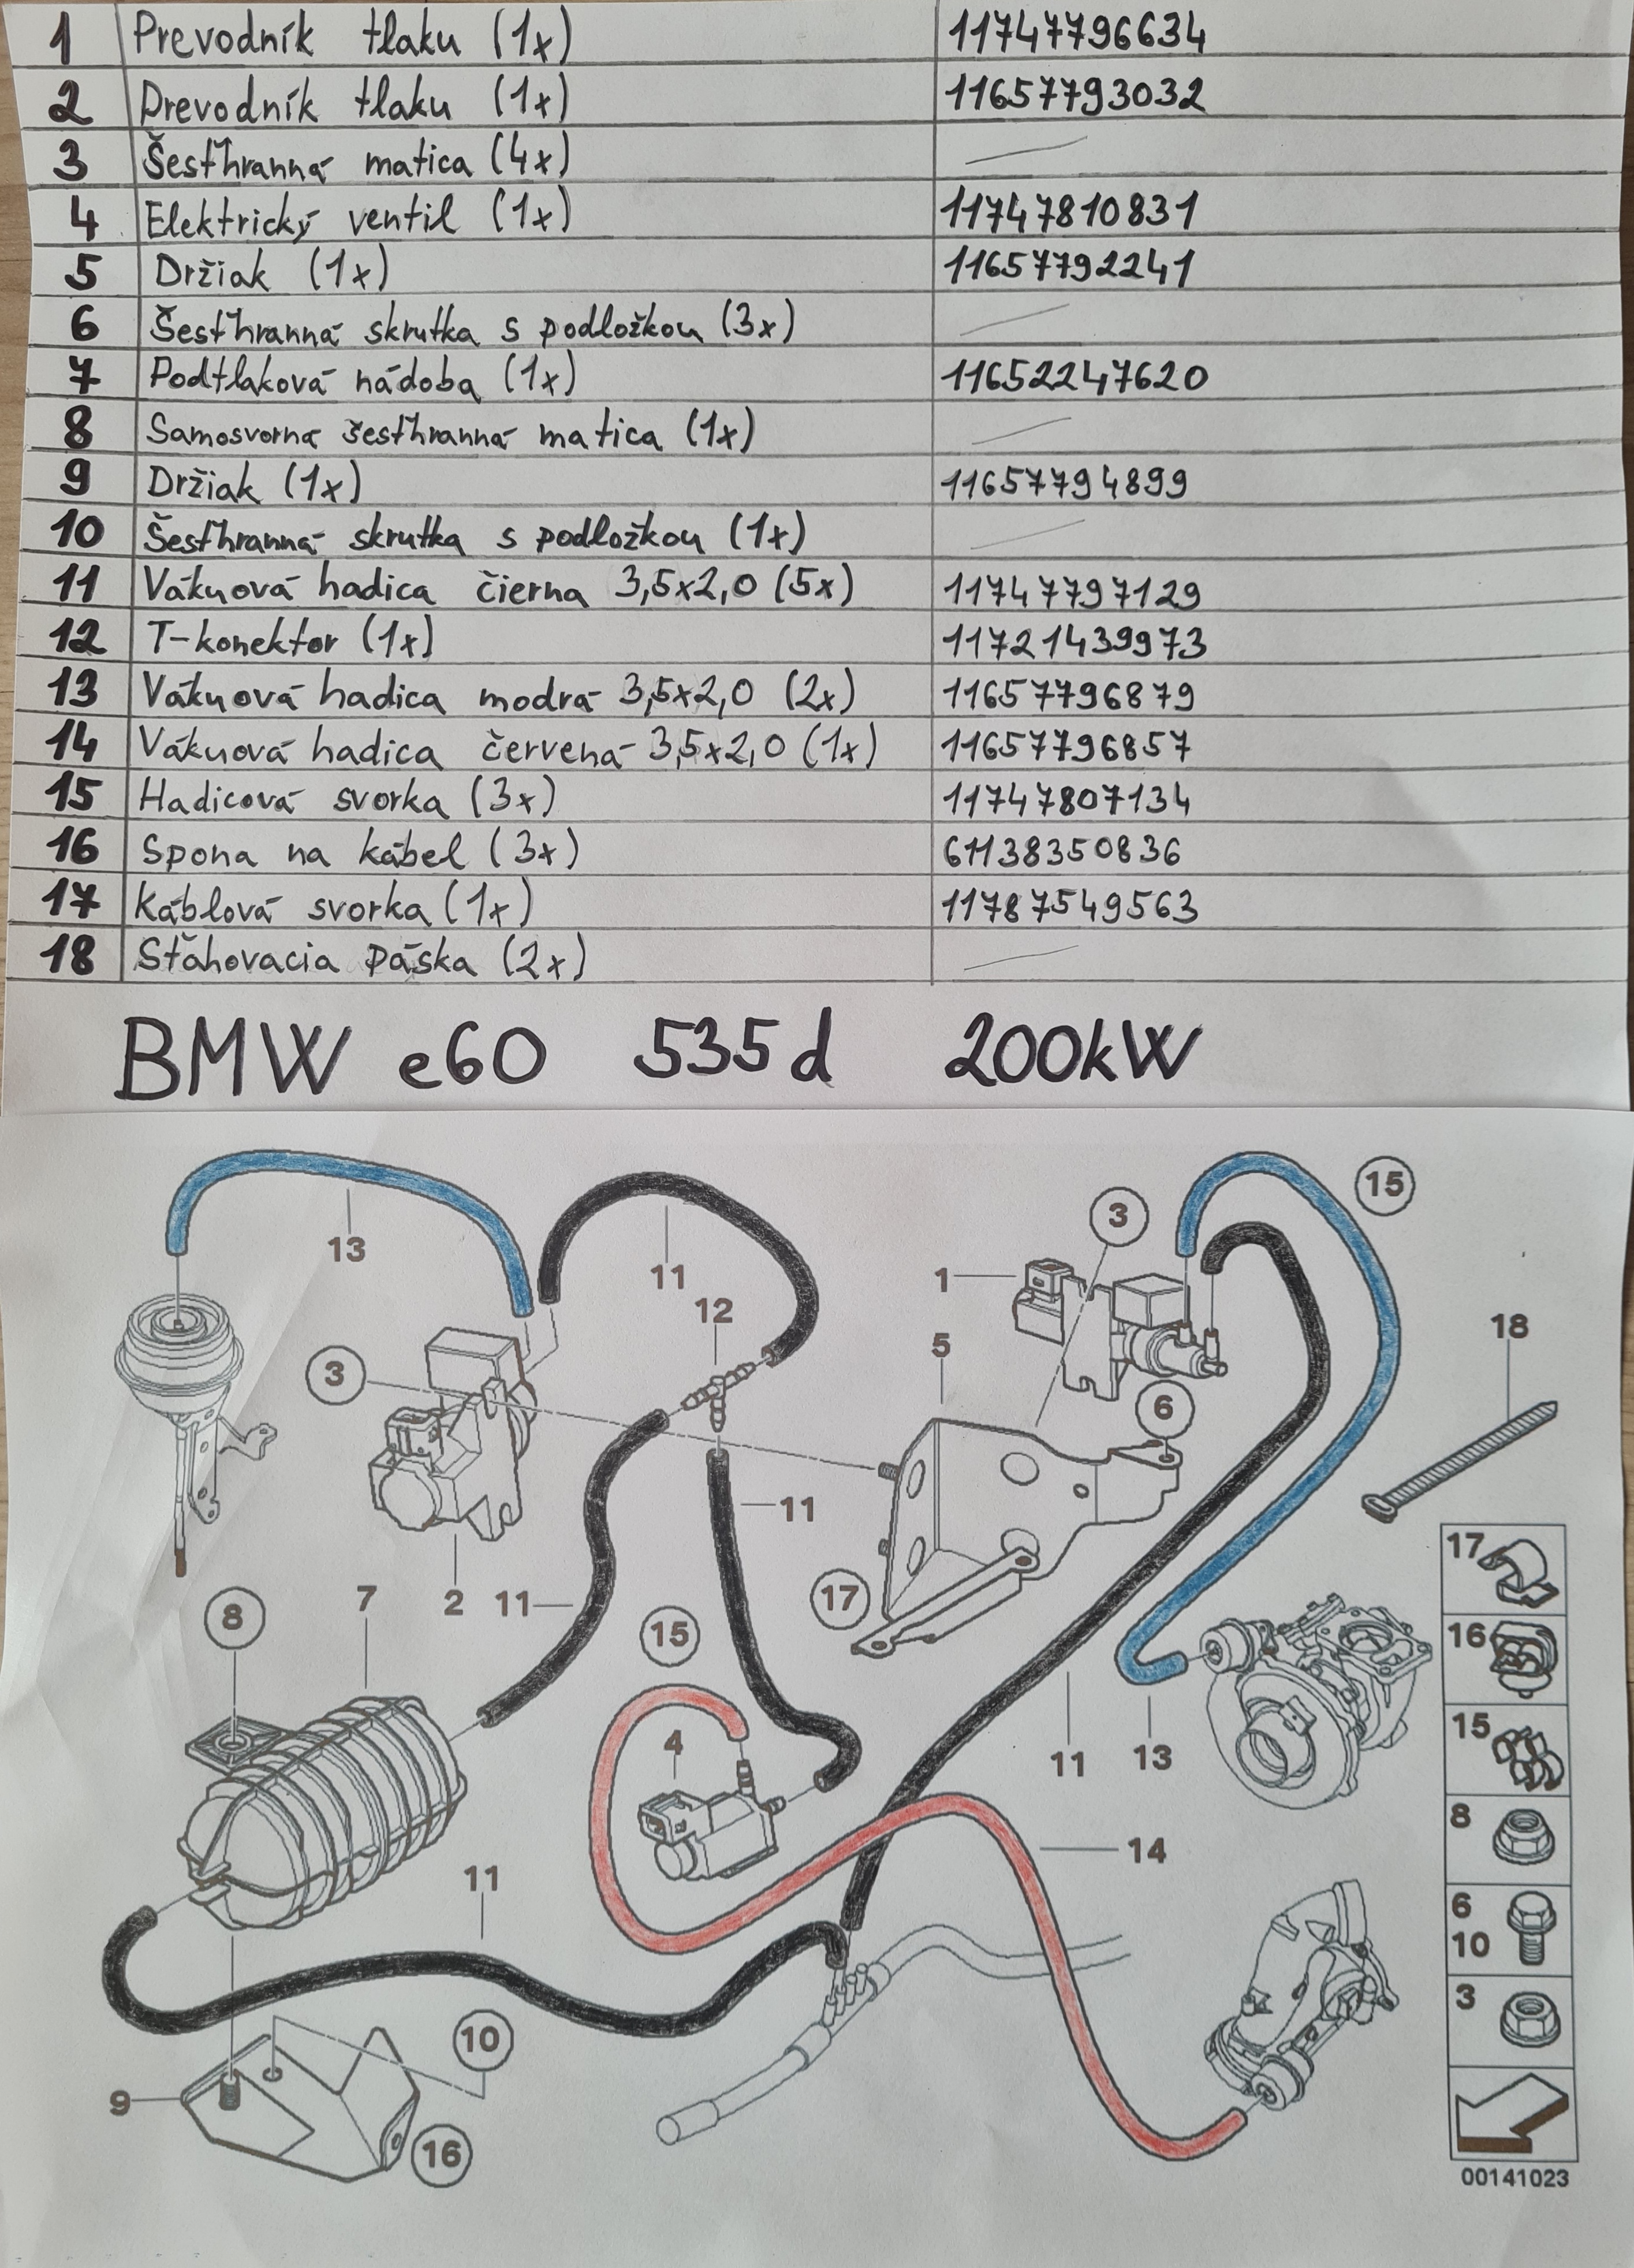 1 Prevodník tlaku (1x) 11747796634
2 Prevodník tlaku (1x) 11657793032
3 Šesťhranná matica (4x)
4 Elektrický ventil (1x) 11747810831
5 Držiak (1x) 11657792241
6 Šesťhranná skrutka s podložkou (3x)
7 Podtlaková nádoba (1x) 11652247620
8 Samosvorná šesťhranná matica (1x)
9 Držiak (1x) 11657794899
10 Šesťhranná skrutka s podložkou (1x)
11 Vákuová hadica čierna 3,5x2,0 (5x) 11747797129
12 T-konektor (1x) 11721439973
13 Vákuová hadica modrá 3,5x2,0 (2x) 11657796879
14 Vákuová hadica červená 3,5x2,0 (1x) 11657796857
15 Hadicová svorka (3x) 11747807134
16 Spona na kábel (3x) 61138350836
17 Káblová svorka (1x) 11787549563
18 Sťahovacia páska (2x)
BMW e60 535d 200kW
15
3
13
11
1
12
18
5
3
6
11
17
7
2
11
17
8
15
16
15
4
11
13
8
14
11
6
10
3
10
9
16
00141023